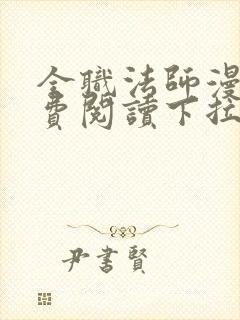 全職法師漫
費閱讀下拉
尹書賢